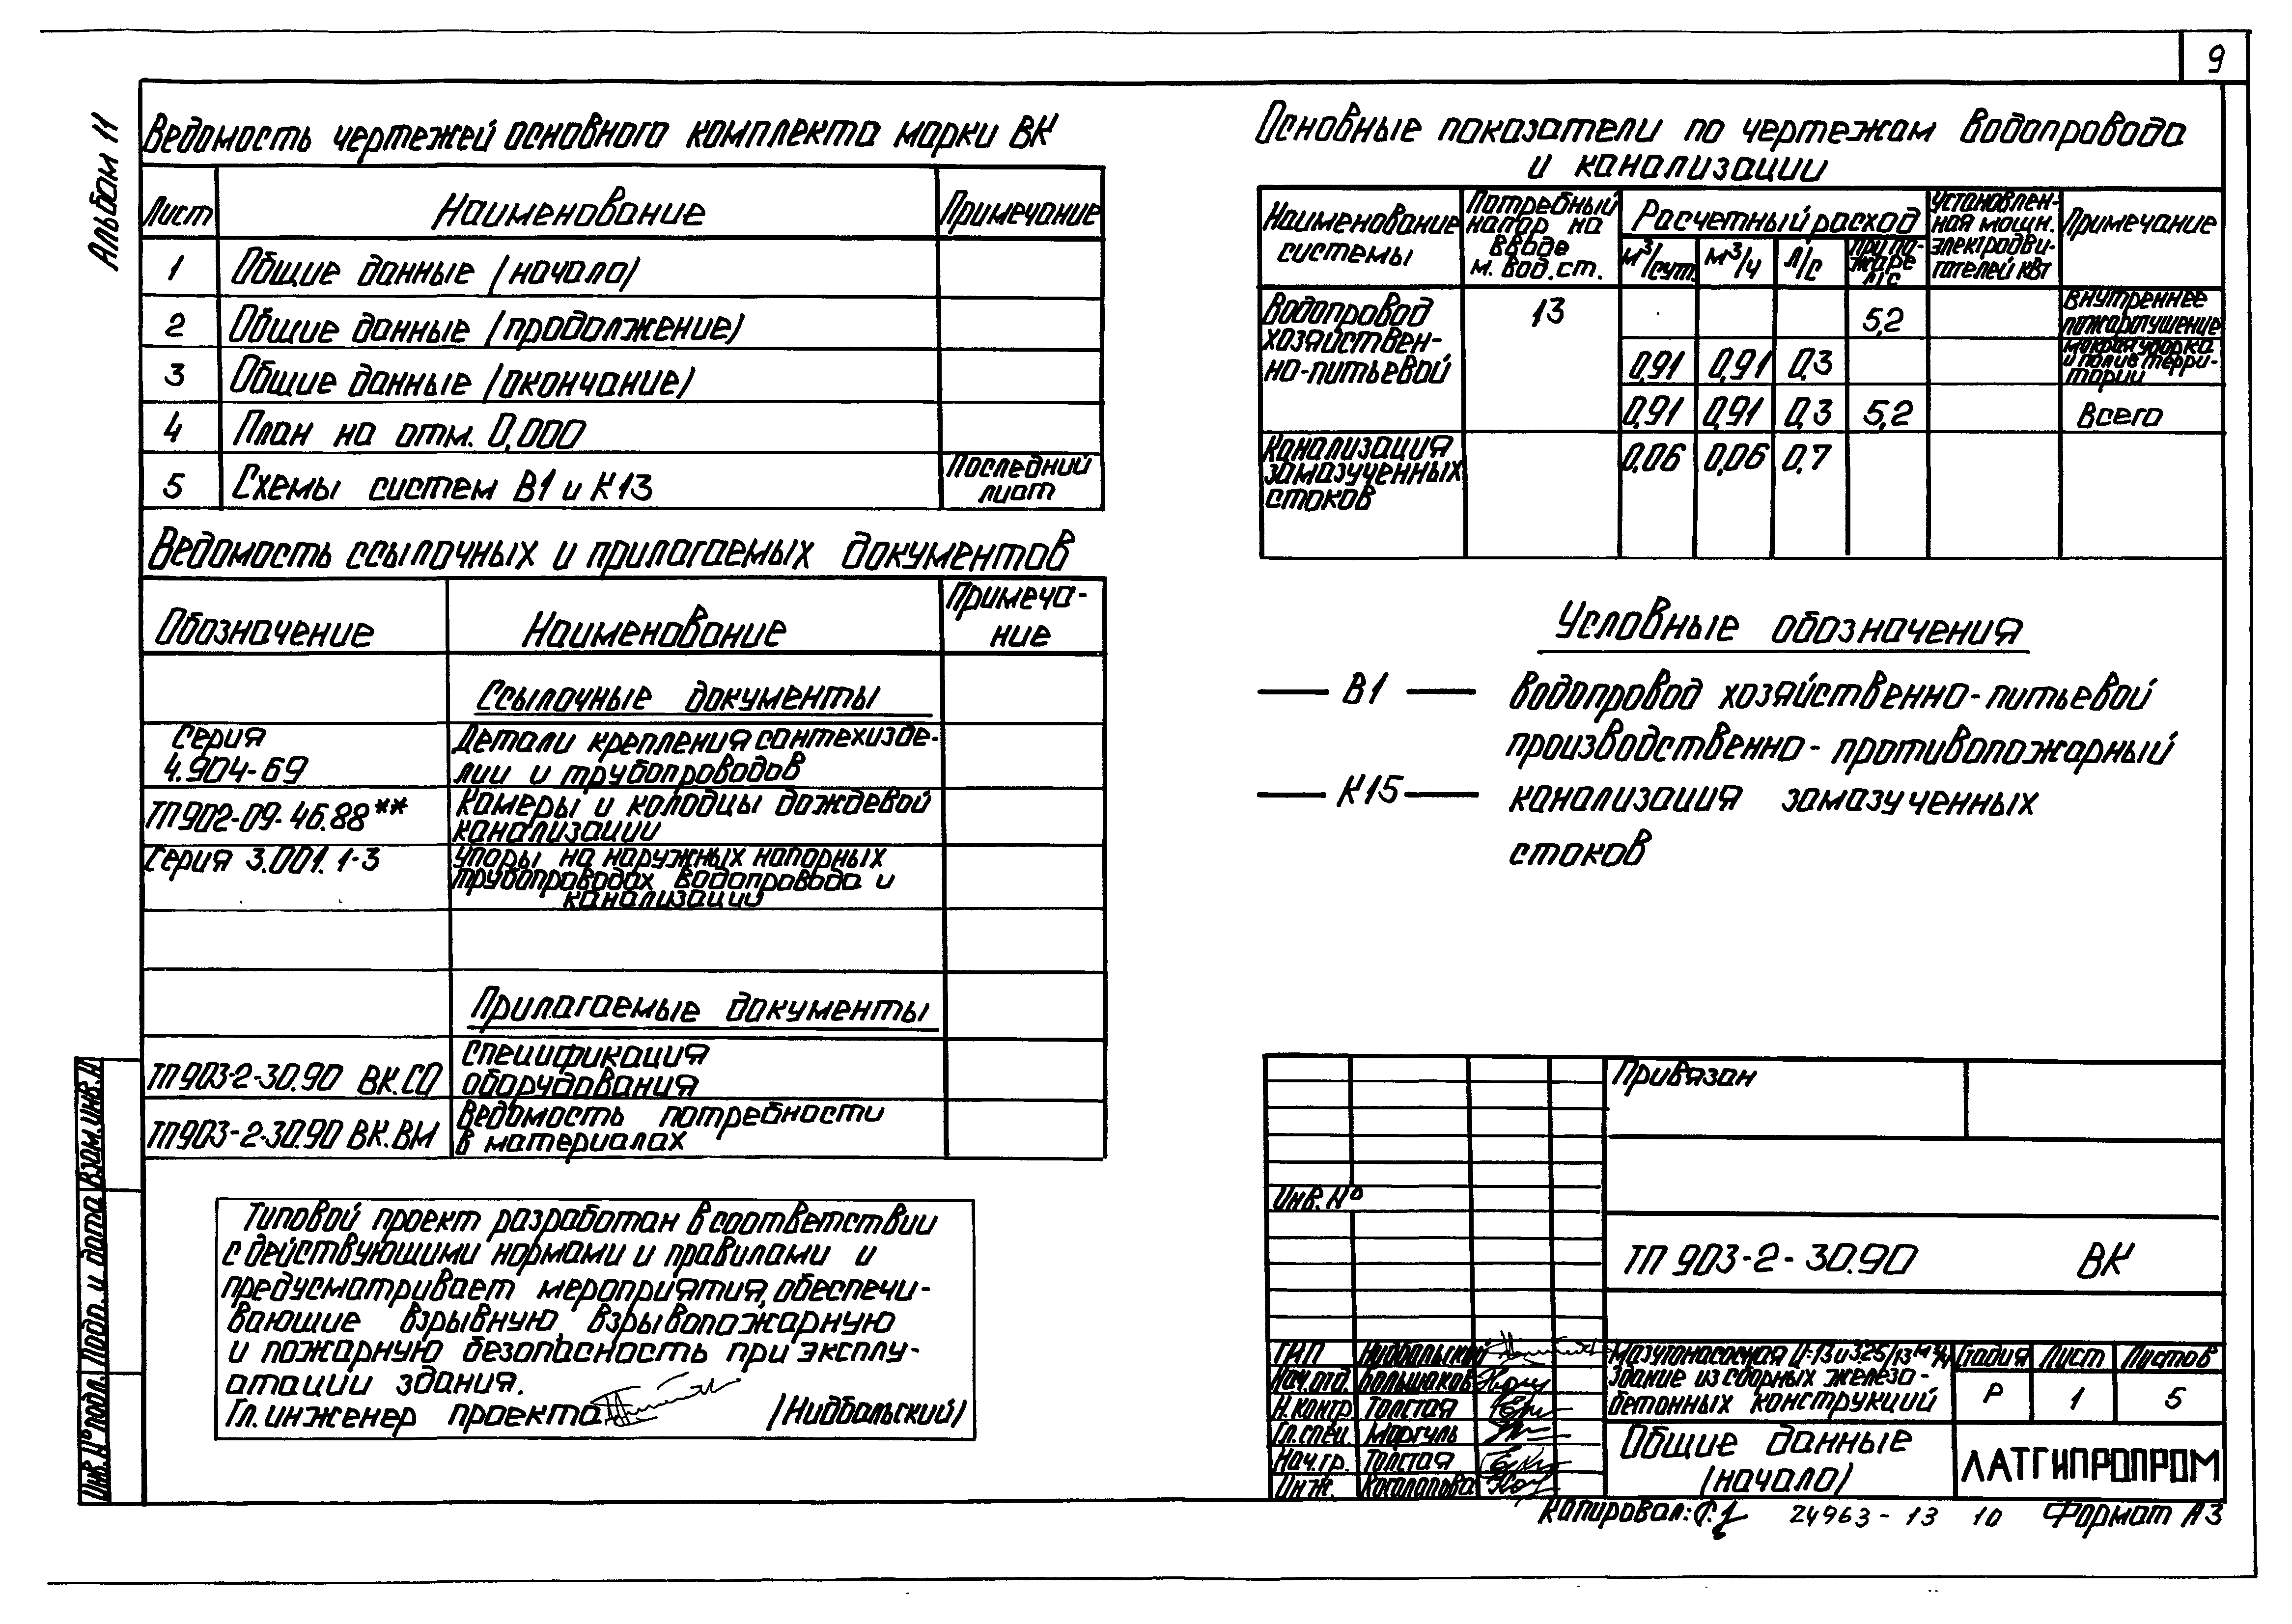 9
Альбом 11
Ведомость чертежей основного комплекта марки ВК
Лист Наименование Примечание
1 Общие данные (начало)
2 Общие данные (продолжение)
3 Общие данные (окончание)
4 План на отм. 0,000
5 Схемы систем В1 и К13 Последний
лист
Ведомость ссылочных и прилагаемых документов
Обозначение Наименование Примеча-
ние
Ссылочные документы
Серия
4.904-69
Детали крепления сантехизде-
лии и трубопроводов
ТП902-09-46.88**
Камеры и колодцы дождевой
канализации
Серия 3.001.1-3
упоры на наружных напорных
трубопроводах водопровода и
канализации
Прилагаемые документы
ТП903-2-30.90 ВК.СО
Спецификация
оборудования
ТП903-2-30.90 ВК.ВМ
Ведомость потребности
в материалах
Типовой проект разработан в соответствии
с действующими нормами и правилами и
предусматривает мероприятия, обеспечи-
вающие взрывную, взрывопожарную
и пожарную безопасность при эксплу-
атации здания.
Гл. инженер проекта (Нидбальский)
Основные показатели по чертежам водопровода
и канализации
Наименование
системы
Потребный
напор на
вводе
м. вод.ст.
Расчетный расход
м³/сут. м³/ч л/с
при по-
жаре
л/с
Установлен-
ная мощн.
электродви-
гателей квт
Примечание
Водопровод
хозяйствен-
но-питьевой
13 5,2
внутреннее
пожаротушение
0,91 0,91 0,3
мокрая уборка
и полив терри-
тории
0,91 0,91 0,3 5,2 Всего
Канализация
замазученных
стоков
0,06 0,06 0,7
Условные обозначения
— В1 — водопровод хозяйственно-питьевой
производственно-противопожарный
— К15 — канализация замазученных
стоков
Привязан
Инв. №
ТП 903-2-30.90 ВК
ГИП Нидбальский
Нач.отд. Большаков
Н.контр. Толстая
Гл.спец. Маргуль
Нач.гр. Толстая
Инж. Косолапова
Мазутонасосная Q=13 и 3.25/13 м³/ч
Здание из сборных железо-
бетонных конструкций
Стадия Лист Листов
Р 1 5
Общие данные
(начало)
ЛАТГИПРОПРОМ
Копировал:
24963-13 10 Формат А3
Инв.№ подл. Подп. и дата Взам.инв.№